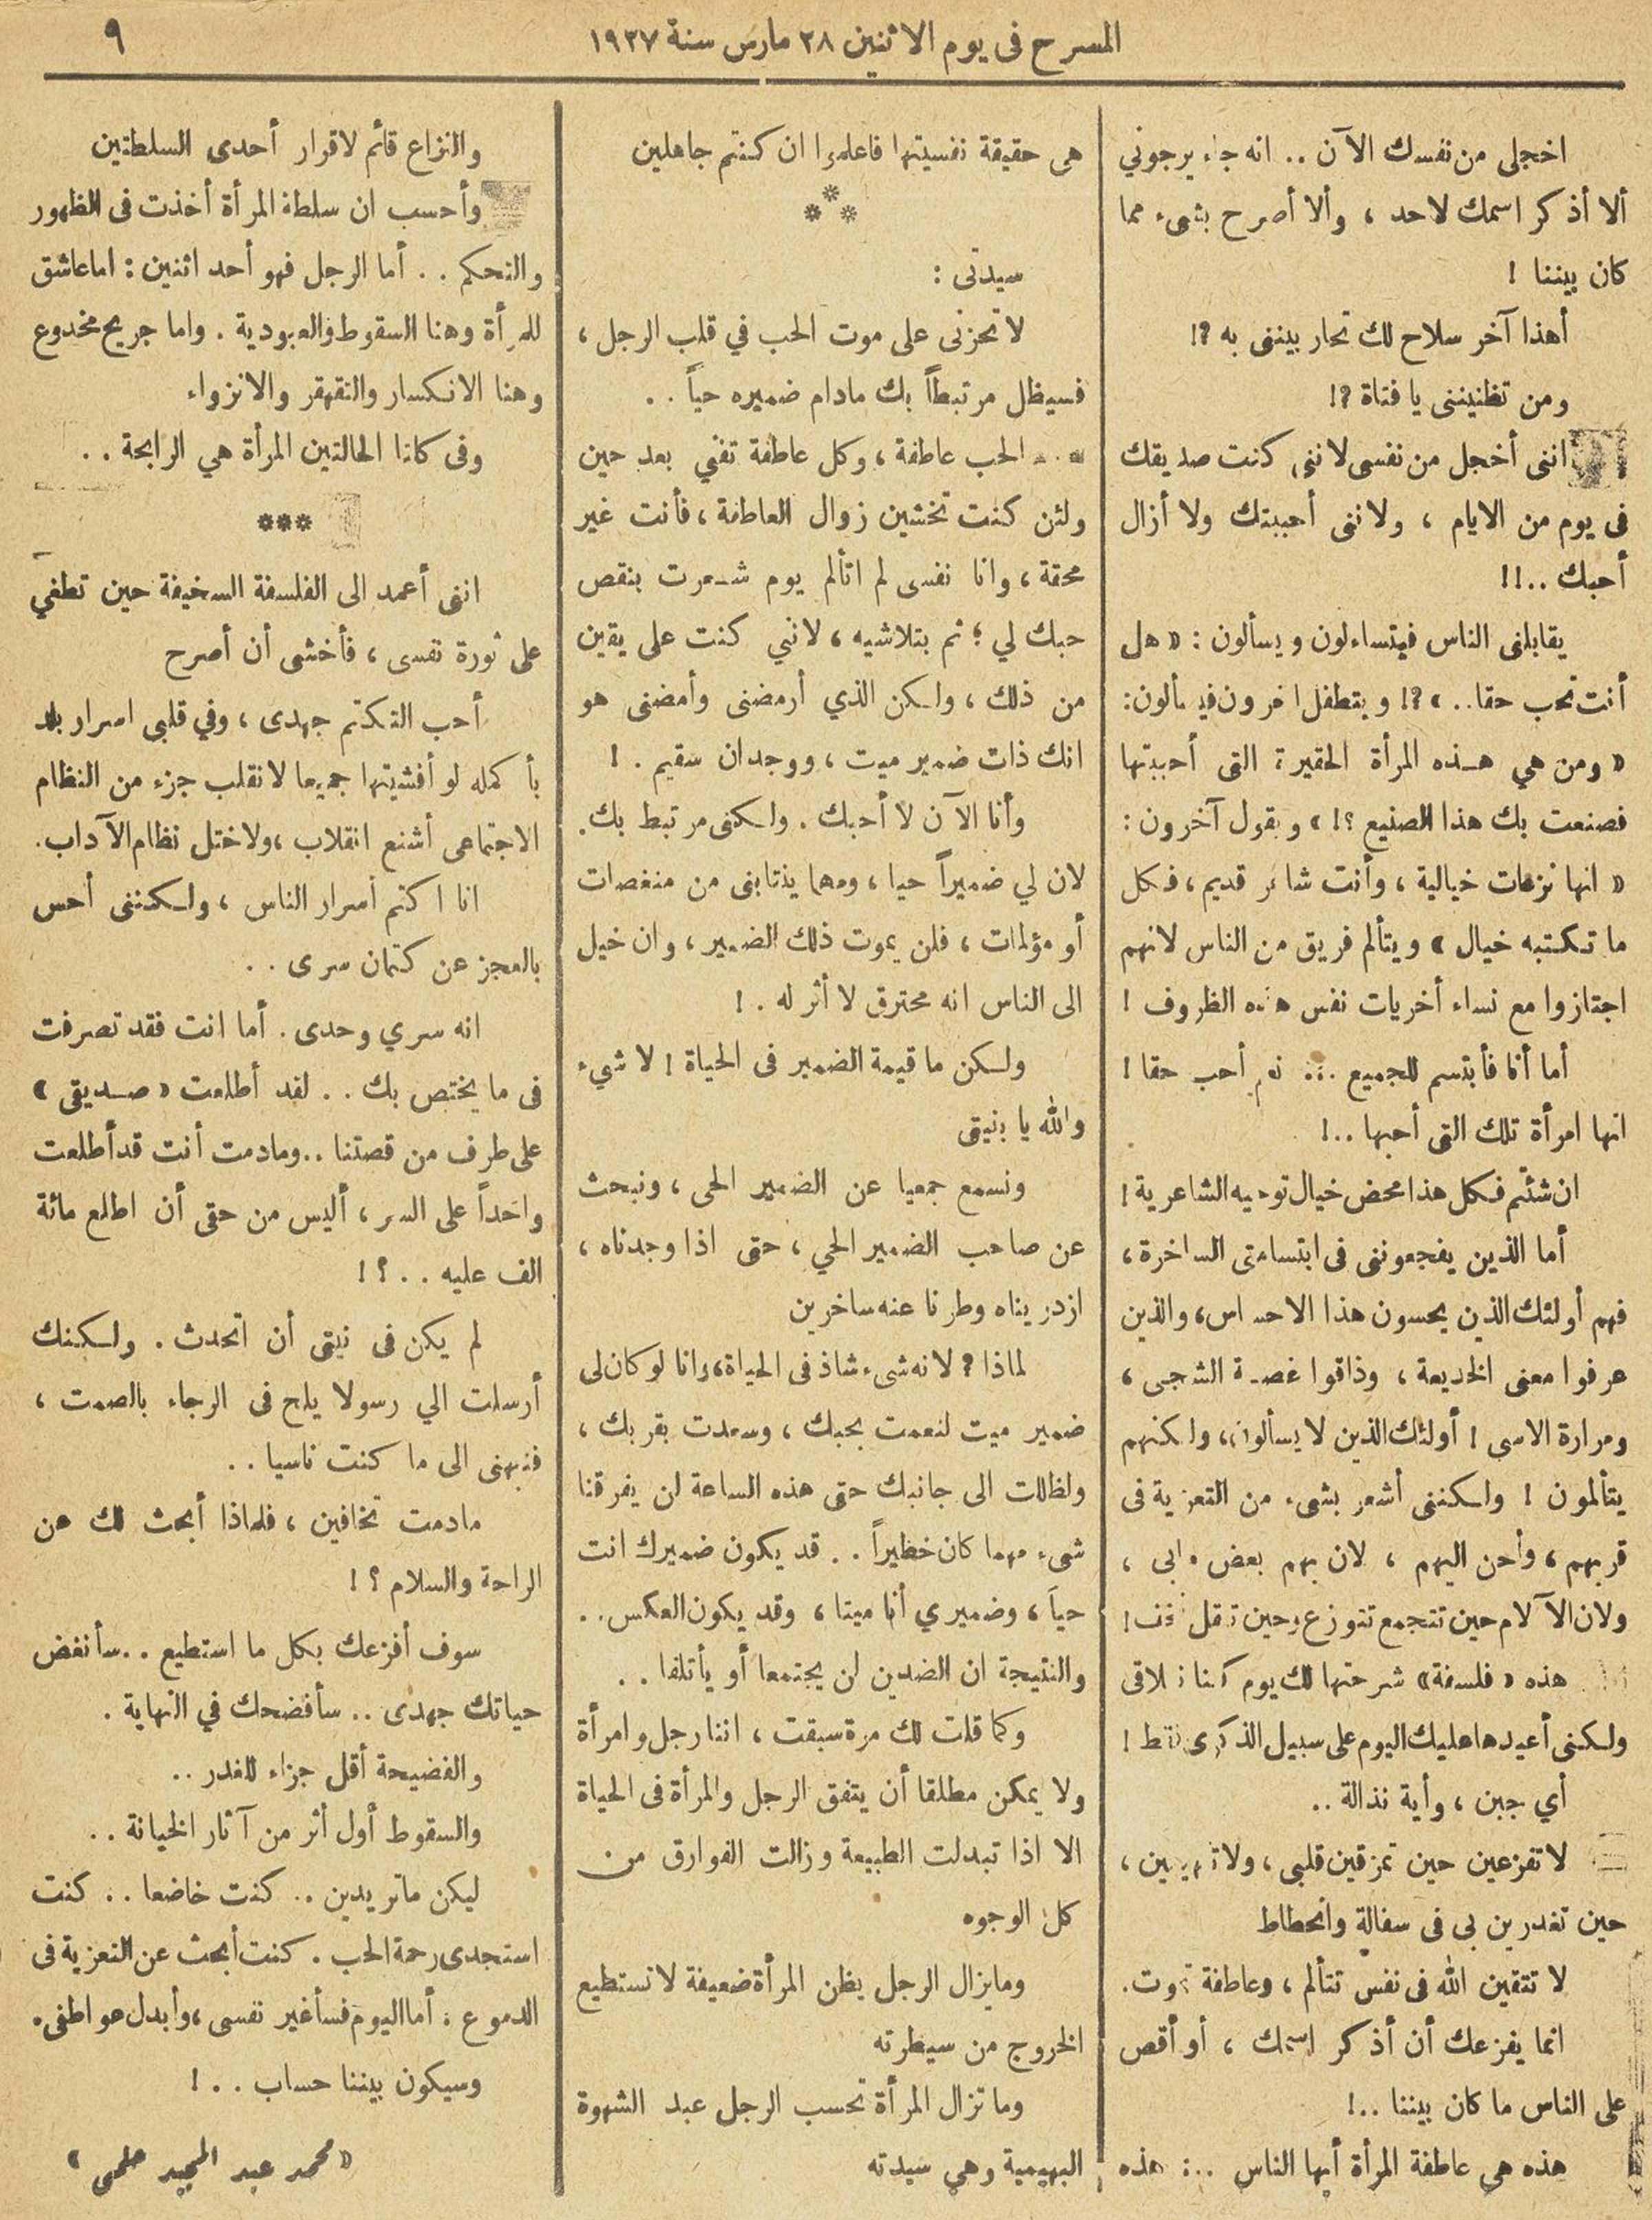 المسرح فى يوم الاثنين ٢٨ مارس سنة ١٩٢٧
٩
اخجلى من نفسك الآن .. انه جاء يرجوني
ألا أذكر اسمك لاحد ، وألا أصرح بشىء مما
كان بيننا !
أهذا آخر سلاح لك تحاربيننى به ?!
ومن تظنيننى يا فتاة ?!
اننى أخجل من نفسى لاننى كنت صديقك
فى يوم من الايام ، ولاننى أحببتك ولا أزال
أحبك ..!!
يقابلنى الناس فيتساءلون ويسألون : « هل
أنت تحب حقا.. » ?! ويتطفل اخرون فيسألون:
« ومن هي هـذه المرأة الحقيرة التى أحببتها
فصنعت بك هذا الصنيع ؟! » ويقول آخرون :
« انها نزعات خيالية ، وأنت شاعر قديم ، فكل
ما تكتبه خيال » ويتألم فريق من الناس لانهم
اجتازوا مع نساء أخريات نفس هذه الظروف !
أما أنا فأبتسم للجميع ... نعم أحب حقا !
انها امرأة تلك التى أحبها ..!
ان شئتم فكل هذا محض خيال توحيه الشاعرية !
أما الذين يفجعوننى فى ابتسامتى الساخرة ،
فهم أولئك الذين يحسون هذا الاحساس ، والذين
عرفوا معنى الخديعة ، وذاقوا غصـة الشجى ،
ومرارة الاسى ! أولئك الذين لا يسألون ، ولكنهم
يتألمون ! ولسكننى أشعر بشىء من التعزية فى
قربهم ، وأحن اليهم ، لان بهم بعض مابى ،
ولان الآلام حين تتجمع تتوزع وحين تقل تخف !
هذه « فلسفة » شرحتها لك يوم كنا نتلاقى
ولكنى أعيدها عليك اليوم على سبيل الذكرى فقط !
أي جبن ، وأية نذالة ..
لا تفزعين حين تمزقين قلبى ، ولا تهابين ،
حين تغدرين بى فى سفالة وانحطاط
لا تتقين الله فى نفس تتألم ، وعاطفة تموت .
انما يفزعك أن أذكر اسمك ، أو أقص
على الناس ما كان بيننا ..!
هذه هي عاطفة المرأة أيها الناس ..: هذه
هى حقيقة نفسيتها فاعلموا ان كنتم جاهلين
***
سيدتى :
لا تحزنى على موت الحب في قلب الرجل ،
فسيظل مرتبطاً بك مادام ضميره حياً ..
... الحب عاطفة ، وكل عاطفة تفني بعد حين
ولئن كنت تخشين زوال العاطفة ، فأنت غير
محقة ، وانا نفسى لم اتألم يوم شـعرت بنقص
حبك لي ؛ ثم بتلاشيه ، لانني كنت على يقين
من ذلك ، ولكن الذي أرمضنى وأمضنى هو
انك ذات ضمير ميت ، ووجدان سقيم . !
وأنا الآن لا أحبك . ولكنى مرتبط بك.
لان لي ضميراً حيا ، ومهما ينتابنى من منغصات
أو مؤلمات ، فلن يموت ذلك الضمير ، وان خيل
الى الناس انه محترق لا أثر له . !
ولكن ما قيمة الضمير فى الحياة ! لا شيء
والله يا بنيتى
ونسمع جمعيا عن الضمير الحى ، ونبحث
عن صاحب الضمير الحي ، حتى اذا وجدناه ،
ازدريناه وطرنا عنه ساخرين
لماذا ? لانه شىء شاذ فى الحياة ، وانا لو كان لى
ضمير ميت لنعمت بحبك ، وسعدت بقربك ،
ولظللت الى جانبك حتى هذه الساعة لن يفرقنا
شىء مهما كان خطيراً .. قد يكون ضميرك انت
حيا ، وضميري أنا ميتا ، وقد يكون العكس ..
والنتيجة ان الضدين لن يجتمعا أو يأتلفا ..
وكما قلت لك مرة سبقت ، اننا رجل وامرأة
ولا يمكن مطلقا أن يتفق الرجل والمرأة فى الحياة
الا اذا تبدلت الطبيعة وزالت الفوارق من
كل الوجوه
ومايزال الرجل يظن المرأة ضعيفة لا تستطيع
الخروج من سيطرته
وما تزال المرأة تحسب الرجل عبد الشهوة
البهيمية وهي سيدته
والنزاع قائم لاقرار أحدى السلطتين
وأحسب ان سلطة المرأة أخذت فى الظهور
والتحكم .. أما الرجل فهو أحد اثنين : اما عاشق
للمرأة وهنا السقوط والعبودية . واما جريح مخدوع
وهنا الانكسار والتقهقر والانزواء
وفى كلتا الحالتين المرأة هي الرابحة ..
***
اننى أعمد الى الفلسفة السخيفة حين تطغي
على ثورة نفسى ، فأخشى أن أصرح
أحب التكتم جهدى ، وفي قلبى اسرار بلد
بأكمله لو أفشيتها جميعا لانقلب جزء من النظام
الاجتماعى أشنع انقلاب ، ولاختل نظام الآداب .
انا اكتم أسرار الناس ، ولكننى أحس
بالعجز عن كتمان سرى ..
انه سري وحدى . أما انت فقد تصرفت
فى ما يختص بك .. لقد أطلعت « صـديقى »
على طرف من قصتنا .. ومادمت أنت قد أطلعت
واحداً على السر ، أليس من حقى أن اطلع مائة
الف عليه .. ؟ !
لم يكن فى نيتى أن اتحدث . ولسكنك
أرسلت الي رسولا يلح فى الرجاء بالصمت ،
فنبهنى الى ما كنت ناسيا ..
مادمت تخافين ، فلماذا أبحث لك عن
الراحة والسلام ؟ !
سوف أفزعك بكل ما استطيع .. سأنغض
حياتك جهدى .. سأفضحك في النهاية .
والفضيحة أقل جزاء للغدر ..
والسقوط أول أثر من آثار الخيانة ..
ليكن ماتريدين .. كنت خاضعا .. كنت
استجدى رحمة الحب . كنت أبحث عن التعزية فى
الدموع ؛ أما اليوم فسأغير نفسى ، وأبدل عواطفى .
وسيكون بيننا حساب .. !
« محمد عبد المجيد حلمى »